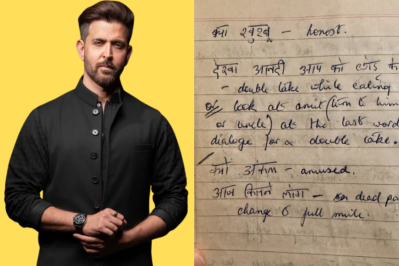 क्या खुश्बू – honest.
देखा आनदी आप को छोड के
- double take while eating
or look at amit (him to him
or uncle) at the last word
dialoge for a double take.
को अंकल – amused.
आज कितने लोग – dead pa
change to full smile.